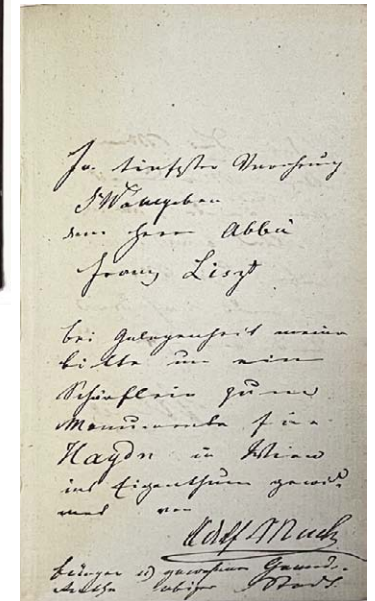 In tiefster Verehrung
dem Herrn Abbé
Franz Liszt
bei Gelegenheit meiner
bitte um ein
Schärflein zum
Monumente für
Haydn in Wien
ins Eigenthum gewid-
met von
Adolf Much
bürger